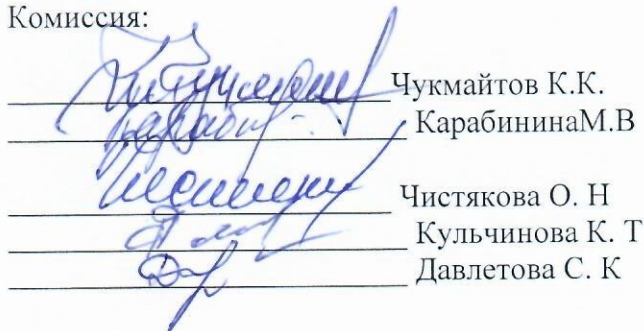 Комиссия:
Чукмайтов К.К.
КарабининаМ.В
Чистякова О. Н
Кульчинова К. Т
Давлетова С. К